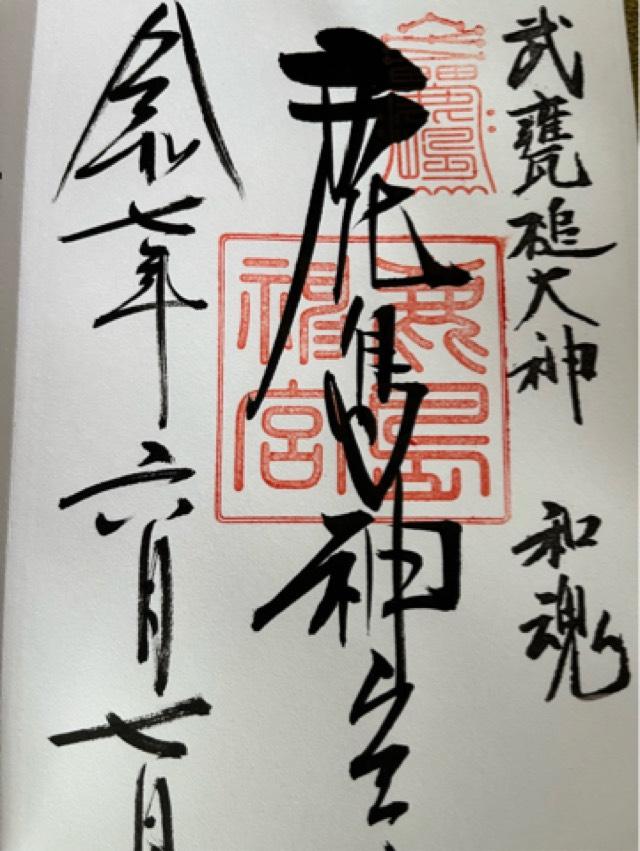 武甕槌大神 和魂
鹿島神宮
鹿島
神宮
令和七年六月七日